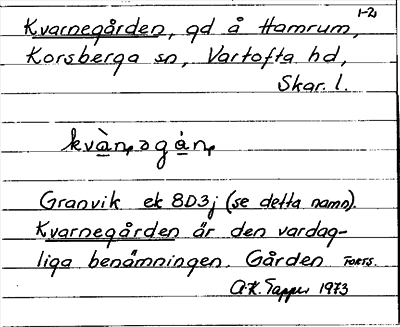 1-2,
Kvarnegården, gd å Hamrum,
Korsberga sn, Vartofta hd,
Skar. l.
kvàṇəgáṇ
Granvik ek 8D3j (se detta namn).
Kvarnegården är den vardag-
liga benämningen. Gården FORTS.
A.K. Tapper 1973